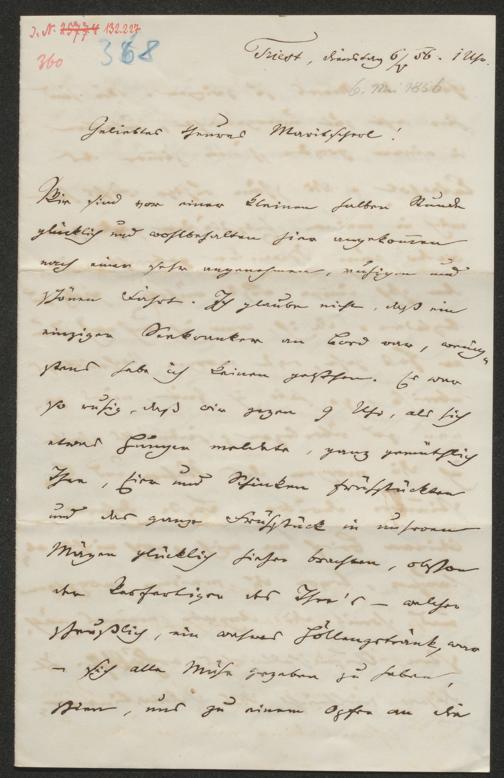 J. N. 25774 132.227
360
368
Triest, Dienstag 6/V 56. 1 Uhr.
6. Mai 1856
Geliebtes theures
Wir sind vor einer kleinen halben Stunde
glücklich und wohlbehalten hier angekommen
nach einer sehr angenehmen, ruhigen und
schönen Fahrt. Ich glaube nicht, daß ein
einziger Seekranker an Bord war, wenig-
stens habe ich keinen gesehen. Es war
so ruhig, daß wir gegen 9 Uhr, als sich
etwas Hunger meldete, ganz gemüthlich
Thee, Eier und Schinken frühstückten
und das ganze Frühstück in unseren
Mägen glücklich hieher brachten, obschon
der Verfertiger des Thee's – welcher
scheußlich, ein wahres Höllengetränk, war
– sich alle Mühe gegeben zu haben,
schien, uns zu einem Opfer an die